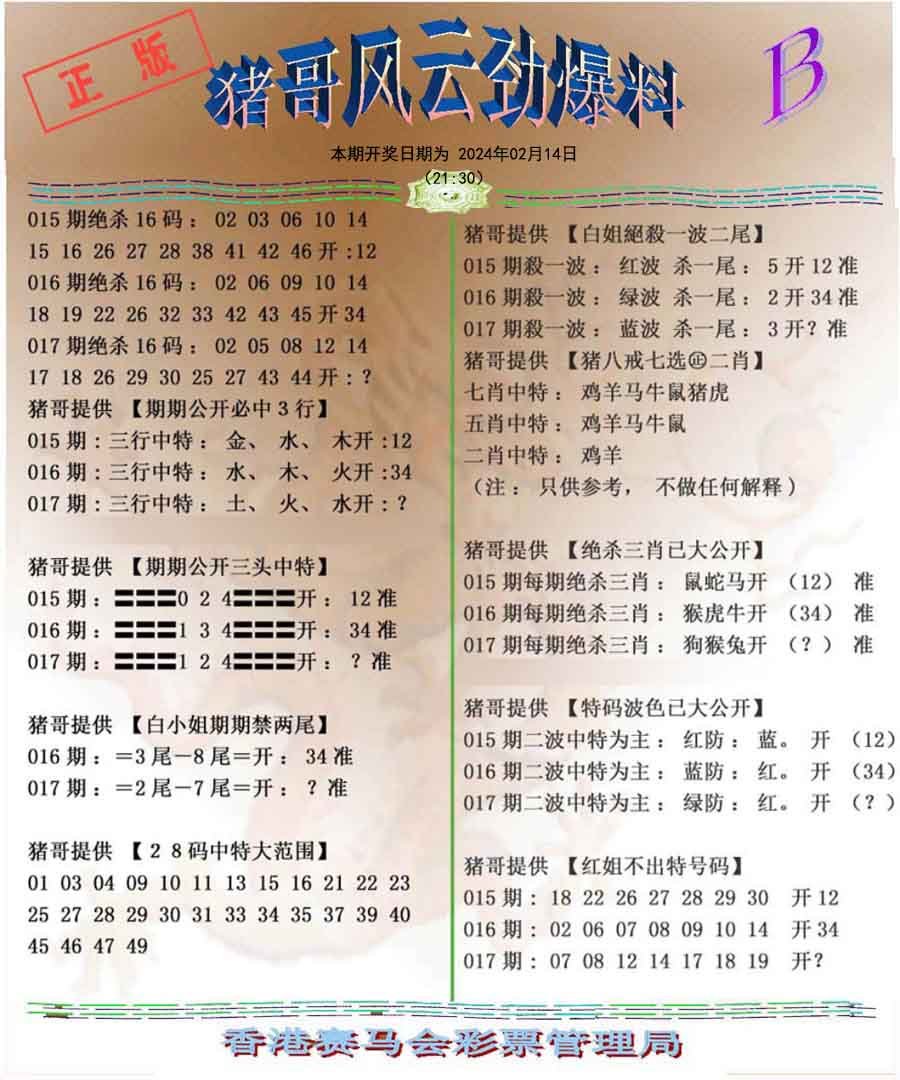 正版
猪哥风云劲爆料
B
本期开奖日期为 2024年02月14日
(21:30)
015期绝杀16码： 02 03 06 10 14
15 16 26 27 28 38 41 42 46开:12
016期绝杀16码： 02 06 09 10 14
18 19 22 26 32 33 42 43 45开34
017期绝杀16码： 02 05 08 12 14
17 18 26 29 30 25 27 43 44开：？
猪哥提供 【期期公开必中3行】
015期:三行中特： 金、 水、 木开:12
016期:三行中特： 水、 木、 火开:34
017期:三行中特： 土、 火、 水开:？
猪哥提供 【期期公开三头中特】
015期:〓〓〓0 2 4〓〓〓开： 12准
016期:〓〓〓1 3 4〓〓〓开： 34准
017期:〓〓〓1 2 4〓〓〓开： ？准
猪哥提供 【白小姐期期禁两尾】
016期:＝3尾－8尾＝开： 34准
017期:＝2尾－7尾＝开： ？准
猪哥提供 【28码中特大范围】
01 03 04 09 10 11 13 15 16 21 22 23
25 27 28 29 30 31 33 34 35 37 39 40
45 46 47 49
猪哥提供 【白姐絕殺一波二尾】
015期殺一波： 红波 杀一尾： 5开12准
016期殺一波： 绿波 杀一尾： 2开34准
017期殺一波： 蓝波 杀一尾： 3开？准
猪哥提供 【猪八戒七选㊣二肖】
七肖中特： 鸡羊马牛鼠猪虎
五肖中特： 鸡羊马牛鼠
二肖中特： 鸡羊
（注： 只供参考， 不做任何解释)
猪哥提供 【绝杀三肖已大公开】
015期每期绝杀三肖： 鼠蛇马开 （12） 准
016期每期绝杀三肖： 猴虎牛开 （34） 准
017期每期绝杀三肖： 狗猴兔开 （？） 准
猪哥提供 【特码波色已大公开】
015期二波中特为主： 红防： 蓝。 开 （12)
016期二波中特为主： 蓝防： 红。 开 （34)
017期二波中特为主： 绿防： 红。 开 （？)
猪哥提供 【红姐不出特号码】
015期： 18 22 26 27 28 29 30 开12
016期： 02 06 07 08 09 10 14 开34
017期： 07 08 12 14 17 18 19 开？
香港赛马会彩票管理局